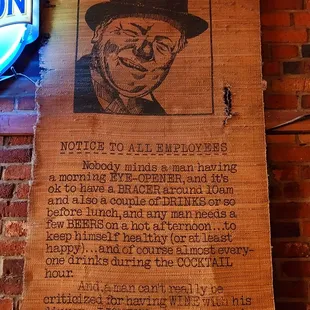 ON
NOTICE TO ALL EMPLOYEES
Nobody minds a man having
a morning EYE-OPENER, and it's
ok to have a BRACER around 10am
and also a couple of DRINKS or so
before lunch, and any man needs a
few BEERS on a hot afternoon...to
keep himself healthy (or at least
happy)...and of course almost every-
one drinks during the COCKTAIL
hour.
And a man can't really be
criticized for having WINE with his